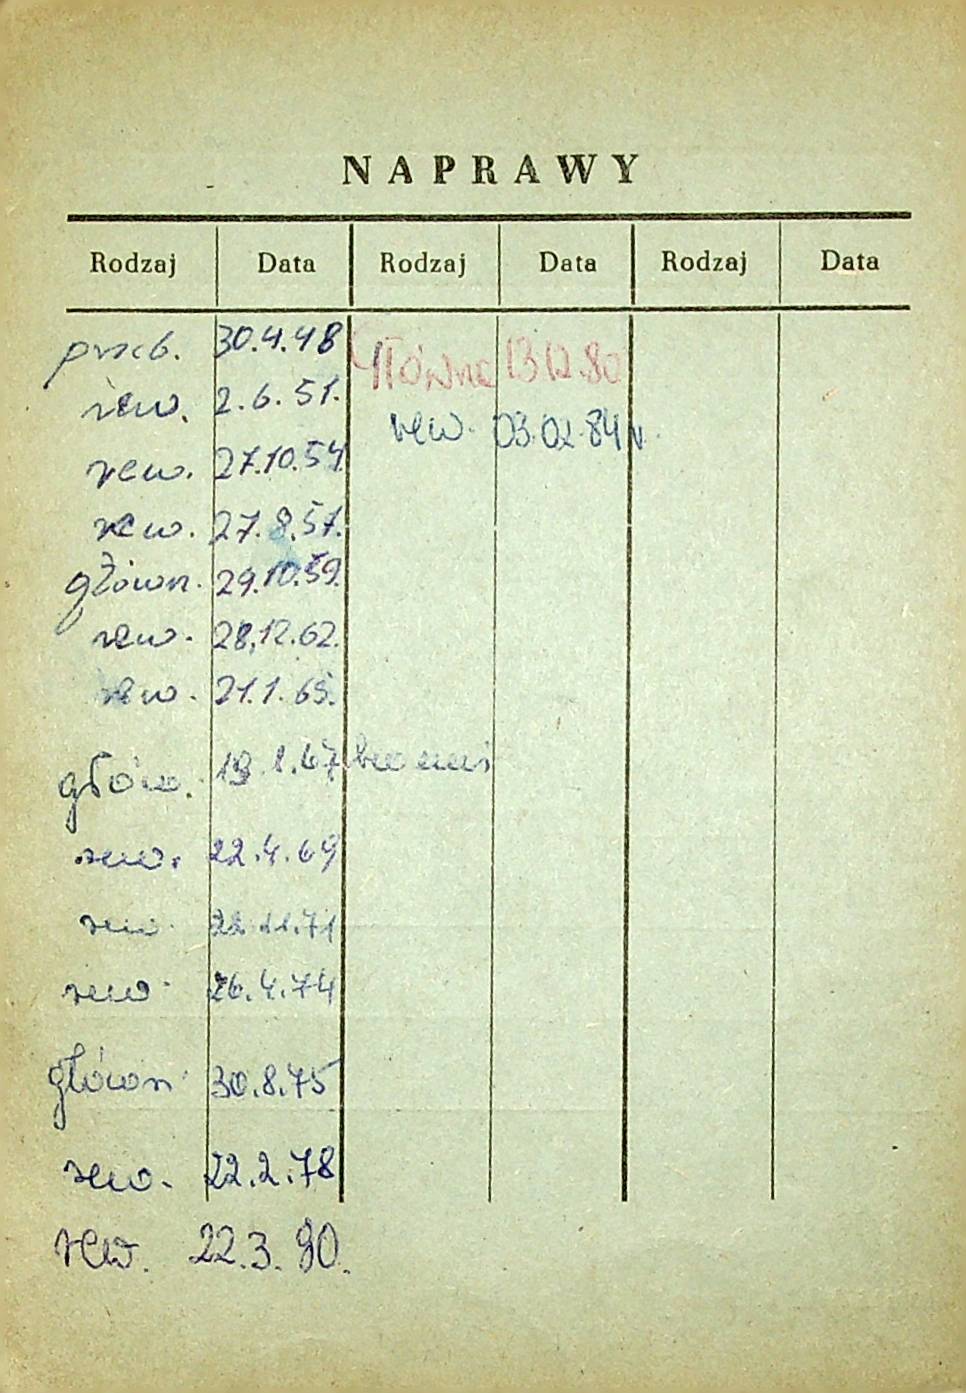 NAPRAWY
Rodzaj Data Rodzaj Data Rodzaj Data
przeb. 30.4.48 Główna 13 12.80
rew. 2.6.51. rew. 03.02.84 r.
rew. 27.10.54
rew. 27.8.57.
główn. 29.10.59.
rew. 28.12.62.
rew. 21.1.65.
głów. 19.1.67
rew. 22.4.69
rew. 22.11.71
rew. 26.4.74
główn. 30.8.75
rew. 22.2.78
rew. 22.3.80.